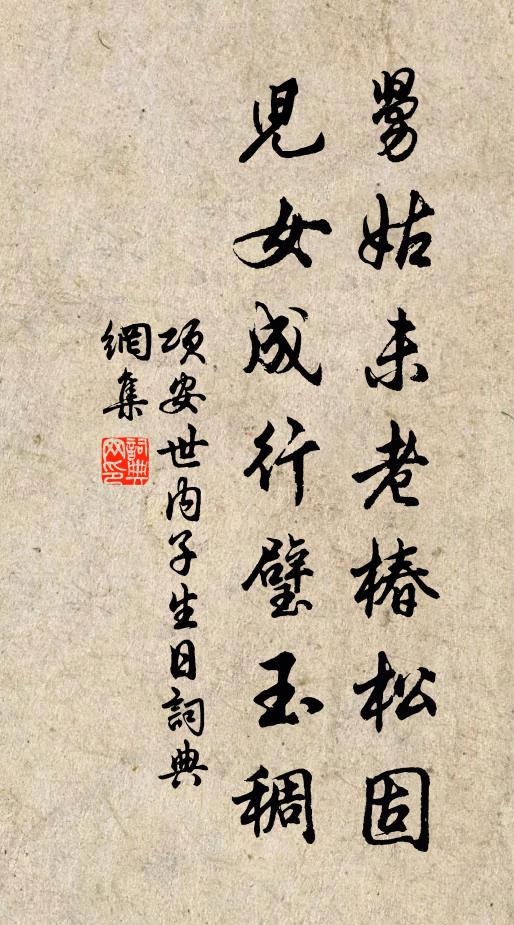 舅姑未老椿松固
兒女成行璧玉稠
項安世內子生日詞典
網集
詞典
网印